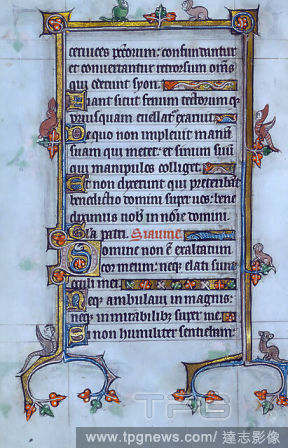 cervices peccatorum: confundantur
et convertantur retrorsum omnes
qui oderunt syon.
Fiant sicut fenum tectorum: q
priusquam evellatur exaruit.
De quo non implevit manum
suam qui metet: et sinum suum
qui manipulos colliget.
Et non dixerunt qui preteribant
benedictio domini super vos: bene
diximus vobis in nomine domini.
Gloria patri.
Domine non est exaltatum
cor meum: neque elati sunt
oculi mei.
Neque ambulavi in magnis:
neque in mirabilibus super me.
Si non humiliter sentiebam:
TPG
www.tpgnews.com/達志影像